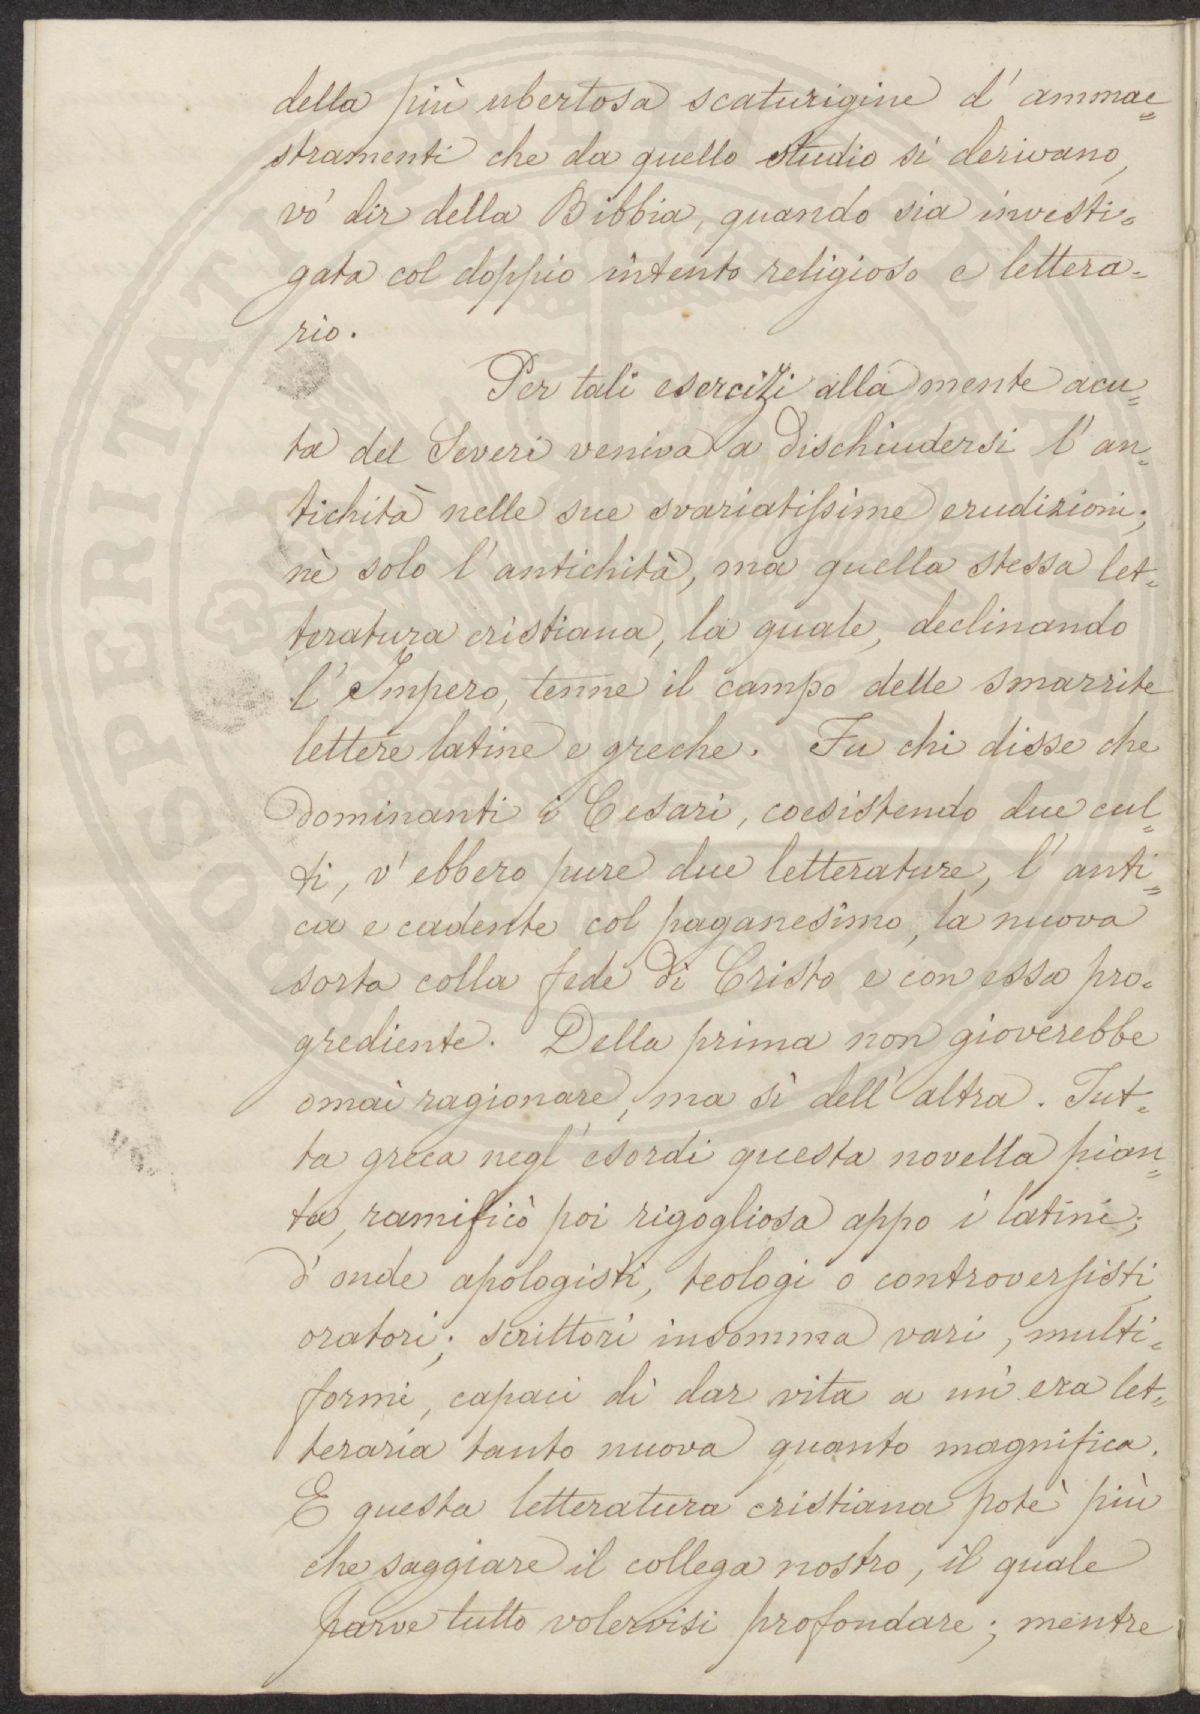 della più ubertosa scaturigine d' ammae=
stramenti che da quello studio si derivano,
vo' dir della Bibbia, quando sia investi=
gata col doppio intento religioso e lettera=
rio.
Per tali esercizi alla mente acu=
ta del Severi veniva a dischiudersi l' an=
tichità nelle sue svariatissime erudizioni;
nè solo l' antichità, ma quella stessa let=
teratura cristiana, la quale, declinando
l' Impero, tenne il campo delle smarrite
lettere latine e greche. Fu chi disse che
dominanti i Cesari, coesistendo due cul=
ti, v' ebbero pure due letterature, l' anti=
ca e cadente col paganesimo, la nuova
sorta colla fede di Cristo e con essa pro=
grediente. Della prima non gioverebbe
omai ragionare, ma sì dell' altra. Tut=
ta greca negl' esordi questa novella pian=
ta, ramificò poi rigogliosa appo i latini;
d' onde apologisti, teologi o controversisti,
oratori; scrittori insomma vari, multi=
formi, capaci di dar vita a un' era let=
teraria tanto nuova quanto magnifica.
E questa letteratura cristiana potè più
che saggiare il collega nostro, il quale
parve tutto volervisi profondare; mentre
PROSPERITATI PVBLICAE